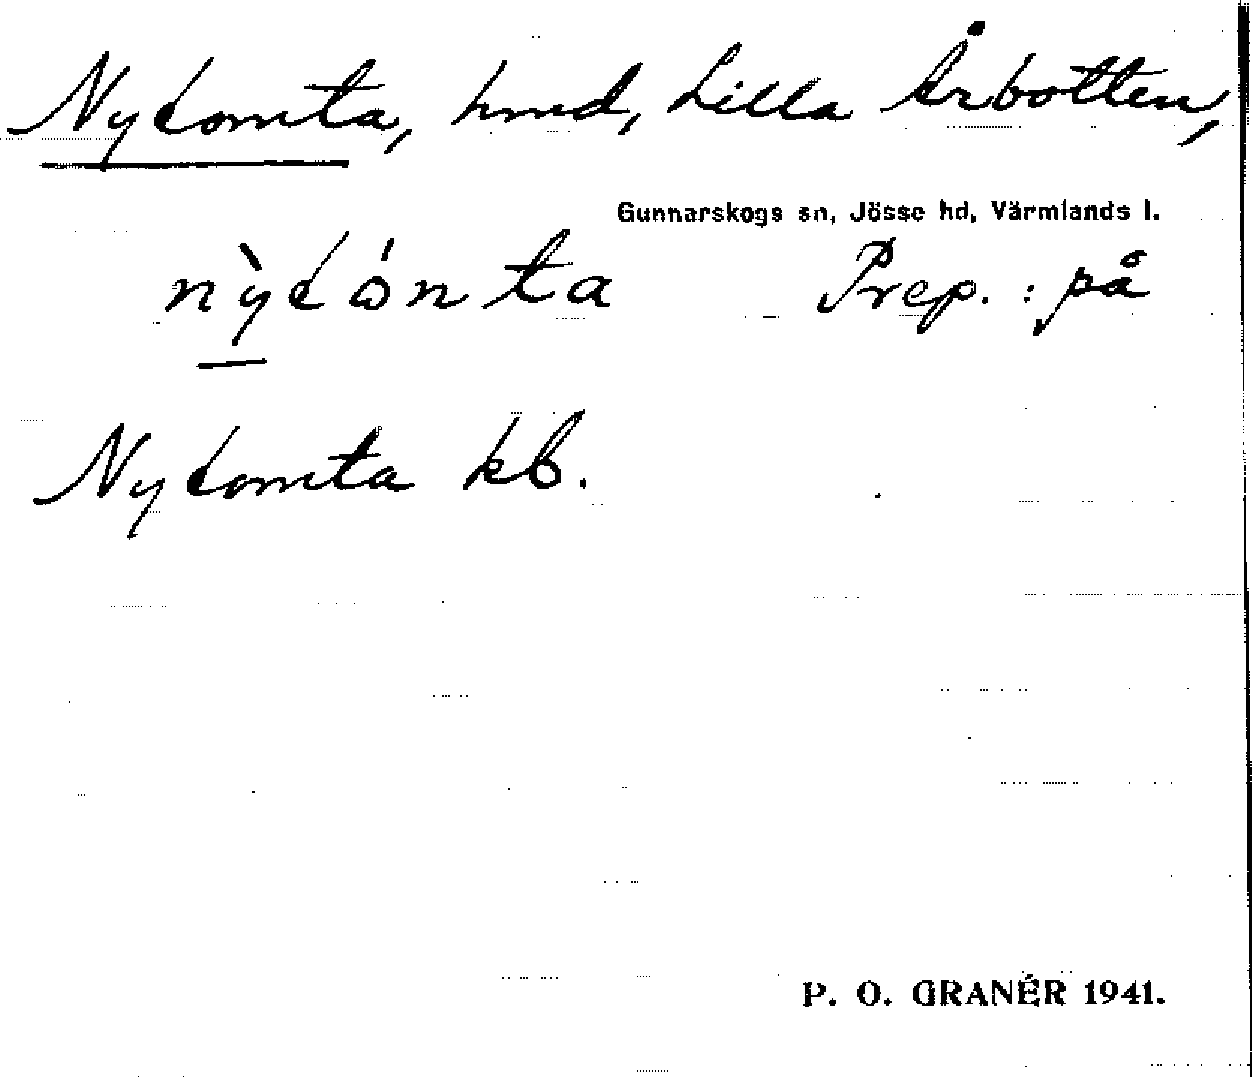 Nytomta, hmd, Lilla Årbotten,
Gunnarskogs sn, Jösse hd, Värmlands l.
nỳtónta Prep. : på
Nytomta kb.
P. O. GRANÉR 1941.